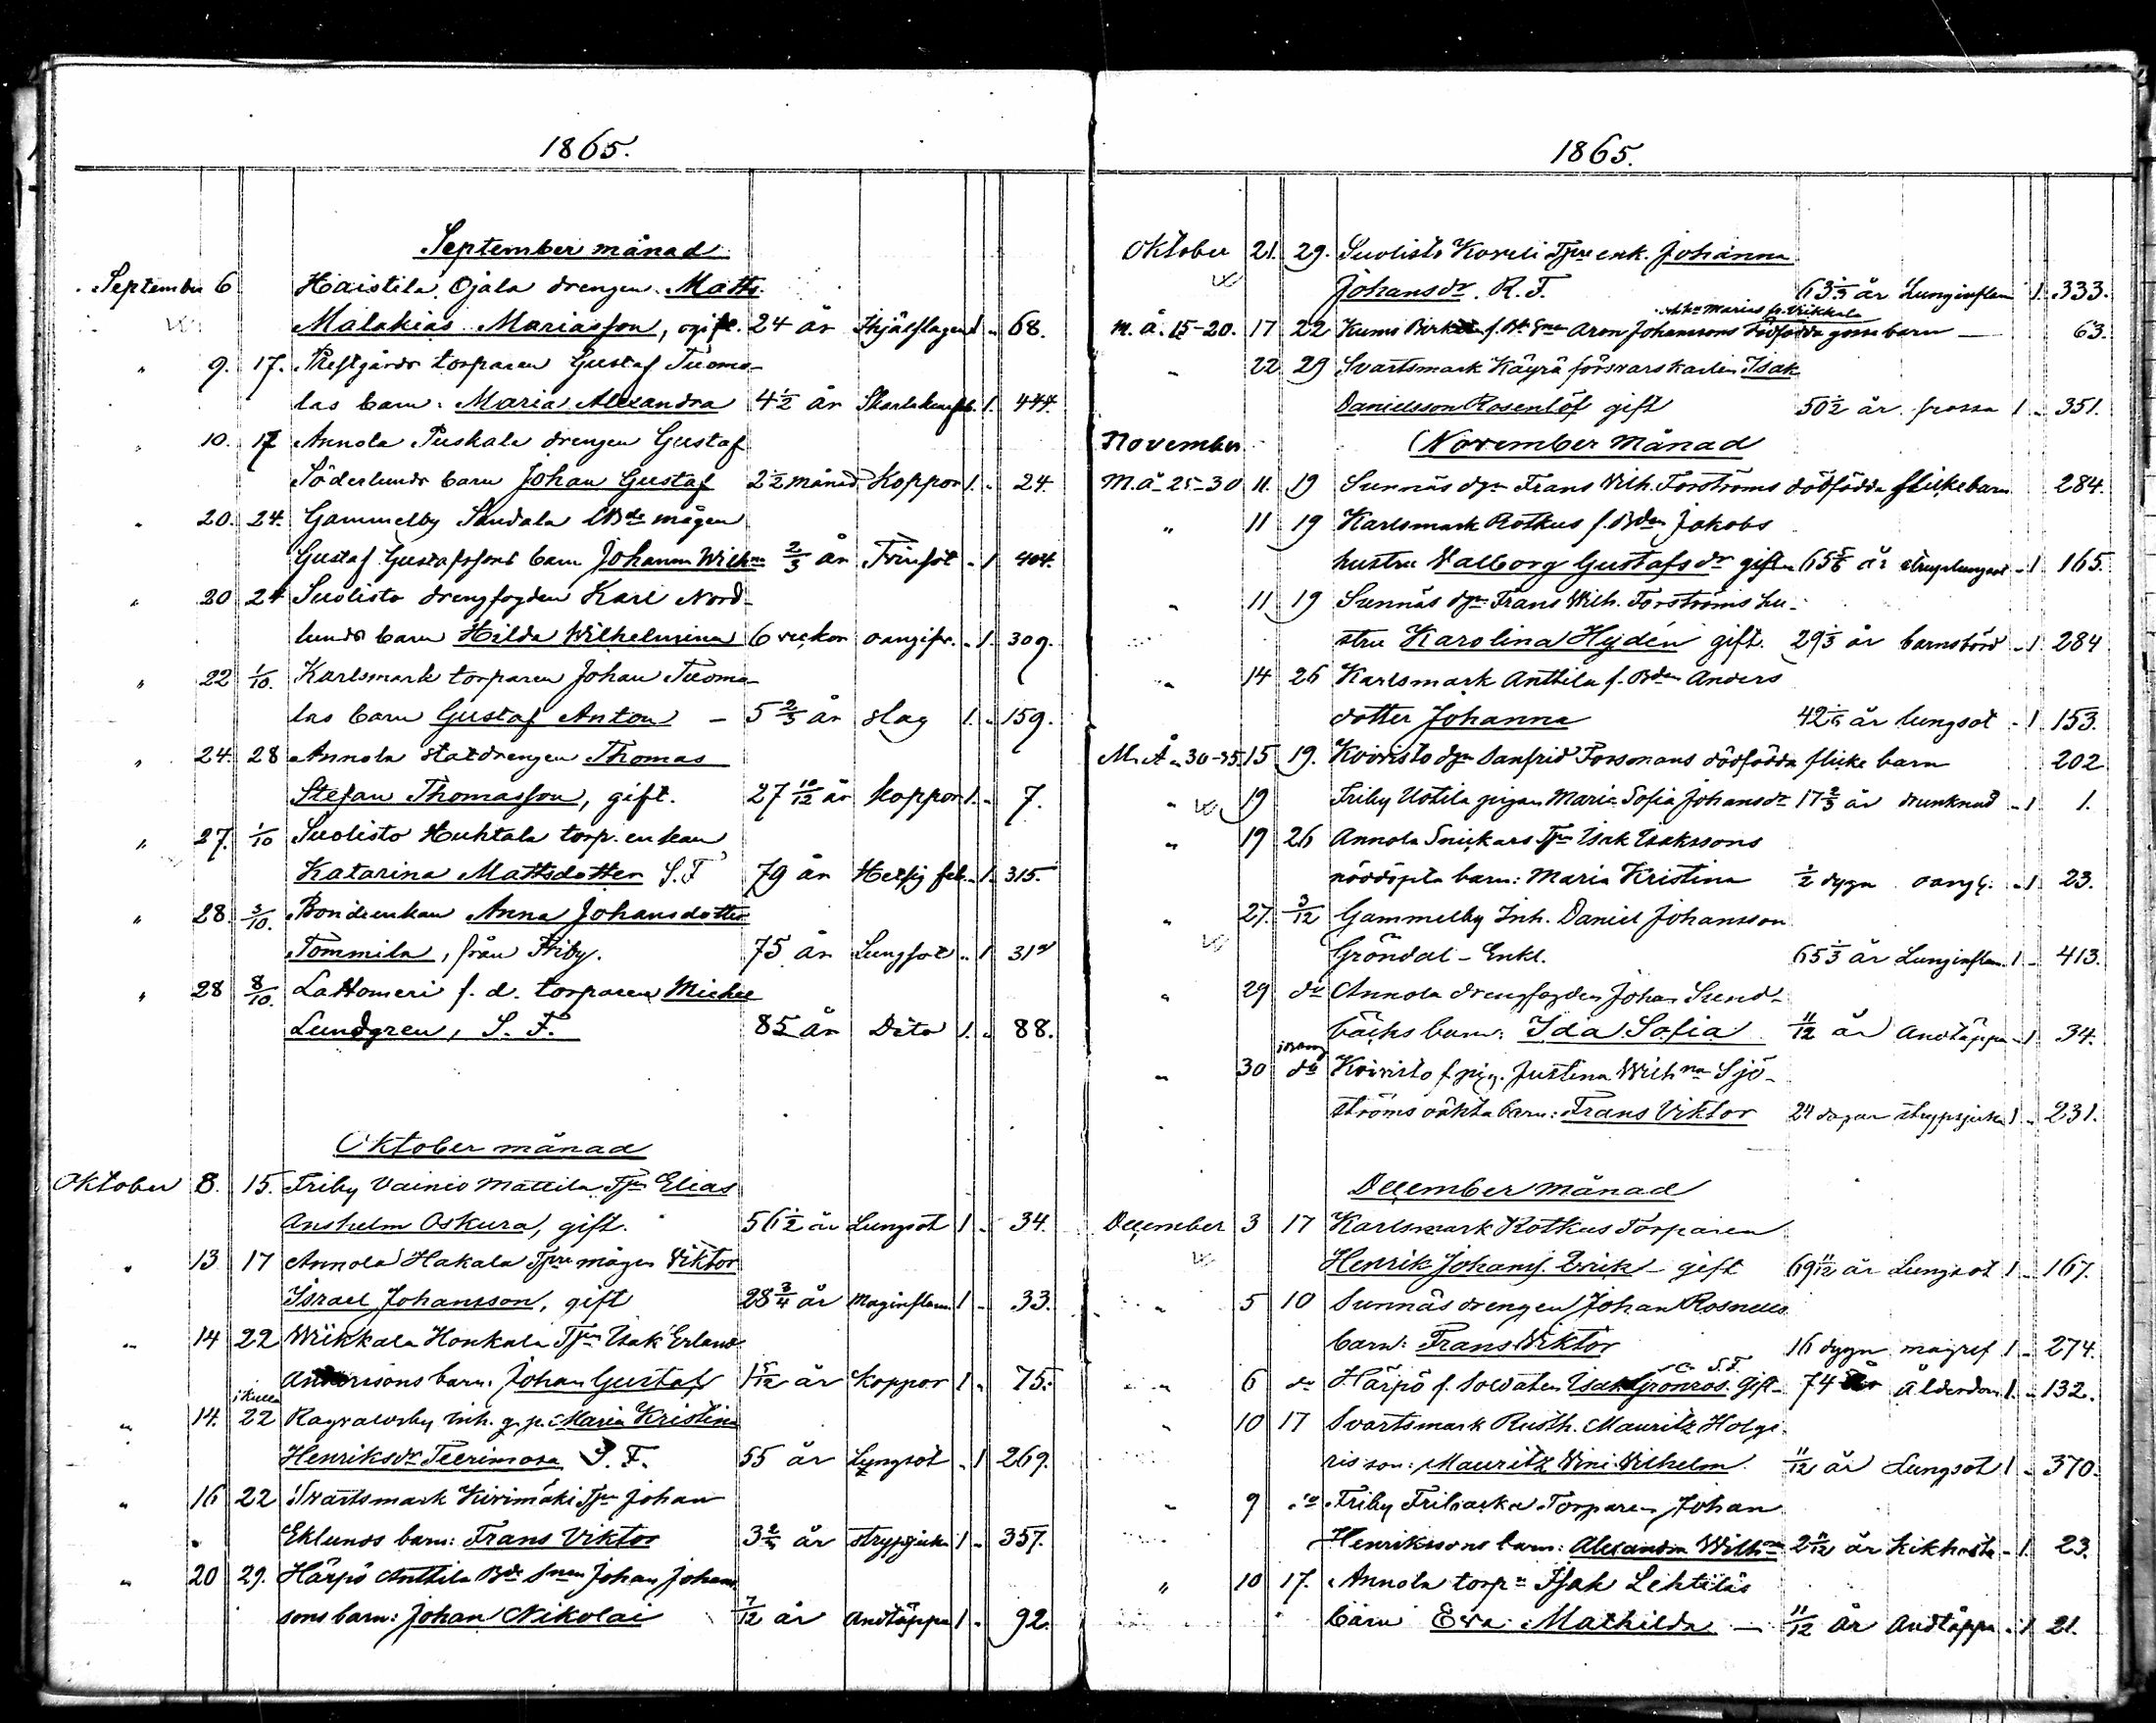 1865.
September månad
September 6 Haistila Ojala drengen Matts
Malakias Mariasson, ogift. 24 år 68.
" 9. 17. Prestgårds torparen Gustaf Tuomo-
las barn. Maria Alexandra 4 1/2 år 1. 444.
" 10. 17 Annola Puskala drengen Gustaf
Söderlunds barn Johan Gustaf 2 1/2 månad Koppor 1. " 24.
" 20. 24. Gammelby Sandala mågen
Gustaf Gustafssons barn Johanna Wilhna 2/3 år " 1 404.
" 20 24 Suolisto drengfogden Karl Nord-
lunds barn Hilda Wilhelmina 6 veckor oangifv. " 1. 309.
" 22 1/10. Karlsmark torparen Johan Tuomo-
las barn Gustaf Anton - 5 2/3 år slag 1. " 159.
" 24. 28 Annola statdrengen Thomas
Stefan Thomasson, gift. 27 10/12 år koppor 1. " 7.
" 27. 1/10 Suolisto Huhtala torp. enkan
Katarina Mattsdotter S. F 79 år feb. " 1. 315.
" 28. 3/10. Bondeenkan Anna Johansdotter
Tommila, från Friby. 75 år Lungsot " 1
" 28 8/10. Lattomeri f. d. torparen Mickel
Lundgren, S. F. 85 år Dito 1. " 88.
Oktober månad
Oktober 8. 15. Friby Vainio Mattila Tprn Elias
Anshelm Oskura, gift. 56 1/2 år Lungsot 1 " 34.
" 13 17 Annola Hakala mågen Viktor
Israel Johansson, gift 28 3/4 år Maginflam. 1 " 33.
" 14 22 Wiikkala Honkala Tprn Isak Erland
barn: Johan Gustaf 1 5/12 år Koppor 1 " 75.
" 14. 22 Inh. Maria Kristina
Henriksdr Teerimosa S. F. 55 år Lungsot " 1 269.
" 16 22 Svartsmark Kivimäki Tprn Johan
Eklunds barn: Frans Viktor år strypsjuka 1 " 357.
" 20 29. Härpö Anttila Bde Snen Johan Johans-
sons barn: Johan Nikolai 7/12 år Andtäppa 1 " 92.
1865.
Oktober 21. 29. Suolisto enk. Johanna
Johansdr. R. F. 63 1/3 år Lunginflam 1. 333.
m. å. 15-20. 17 22 Aron Johanssons gosse barn — 63.
" 22 29 Svartsmark Käyrä försvarskarlen Isak
Danielsson Rosenlöf gift 50 1/2 år frossa 1 " 351.
November November Månad
M. å 25-30 11. 19 Sunnäs Frans Wilh. Forströms dödfödda flickebarn 284.
" 11 19 Karlsmark Rotkus f. Bden Jakobs
hustru Walborg Gustafsdr gift 65 5/6 år " 1 165.
" 11 19 Sunnäs Frans Wilh. Forströms hu-
stru Karolina Hydén gift. 29 1/3 år barnsbörd " 1 284
" 14 26 Karlsmark Anttila f. Bden Anders
dotter Johanna år lungsot " 1 153.
M. Å. 30-35. 15 19. Koivisto Sanfrid Forsmans dödfödda flicke barn 202
" 19 Friby Uotila pigan Maria Sofia Johansdr 17 2/3 år drunknad " 1 1.
" 19 26 Annola Snickars Tprn Isak Isakssons
nöddöpta barn: Maria Kristina 1/2 dygn oang. " 1 23.
" 27. 3/12 Gammelby Inh. Daniel Johansson
Gröndal - Enkl. 65 1/3 år Lunginflam. 1 " 413.
" 29 do Annola drengfogden Johan Sund-
bäcks barn: Ida Sofia 11/12 år Andtäppa " 1 34.
" 30 do Koivisto f. pig. Justina Wilhna Sjö-
ströms oäkta barn: Frans Viktor 24 dagar strypsjuka 1 " 231.
December månad
December 3 17 Karlsmark Rotkus Torparen
Henrik Johans. Erik - gift 69 11/12 år Lungsot 1 " 167.
" 5 10 Sunnäs drengen Johan Rosnells
barn: Frans Wiktor 16 dygn magref 1 " 274.
" 6 do Härpö f. Soldaten Isak Grönros. S. F. gift - 74 år Ålderdom 1 " 132.
" 10 17 Svartsmark Rusth. Mauritz Holge-
ris son: Mauritz Wilhelm 11/12 år Lungsot 1 " 370.
" 9 do Friby Torparen Johan
Henrikssons barn: Alexandra Wilhna 2 11/12 år kikhosta " 1. 23.
" 10 17. Annola torpn Isak Lehtiläs
barn Eva Mathilda — 11/12 år Andtäppa " 1 21.